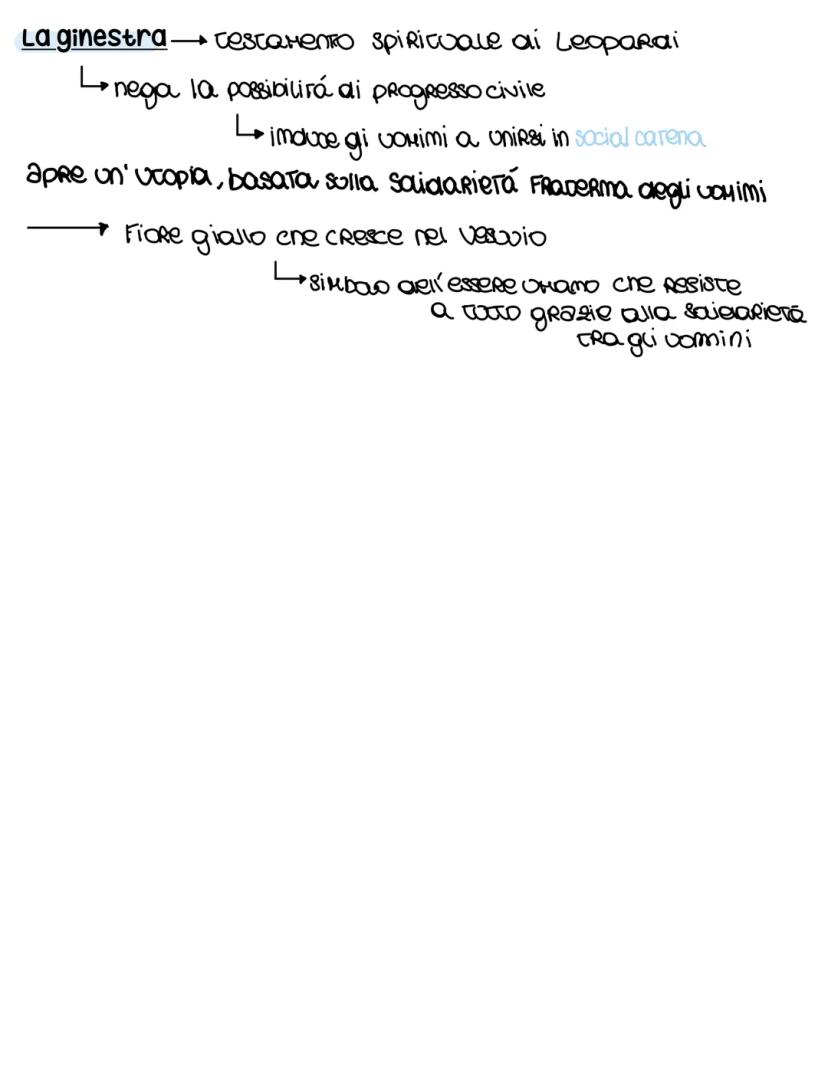 La ginestra → testamento spirituale di Leopardi
↳ nega la possibilitá di progresso civile
↳ induce gi uomimi a unirsi in social catena
apre un' utopia, basata sulla solidarietá fraterma degli uomimi
→ Fiore giallo che cresce nel vesuvio
↳ simbolo dell'essere umano che resiste
a tutto grazie alla solidarietá
tra gli uomini